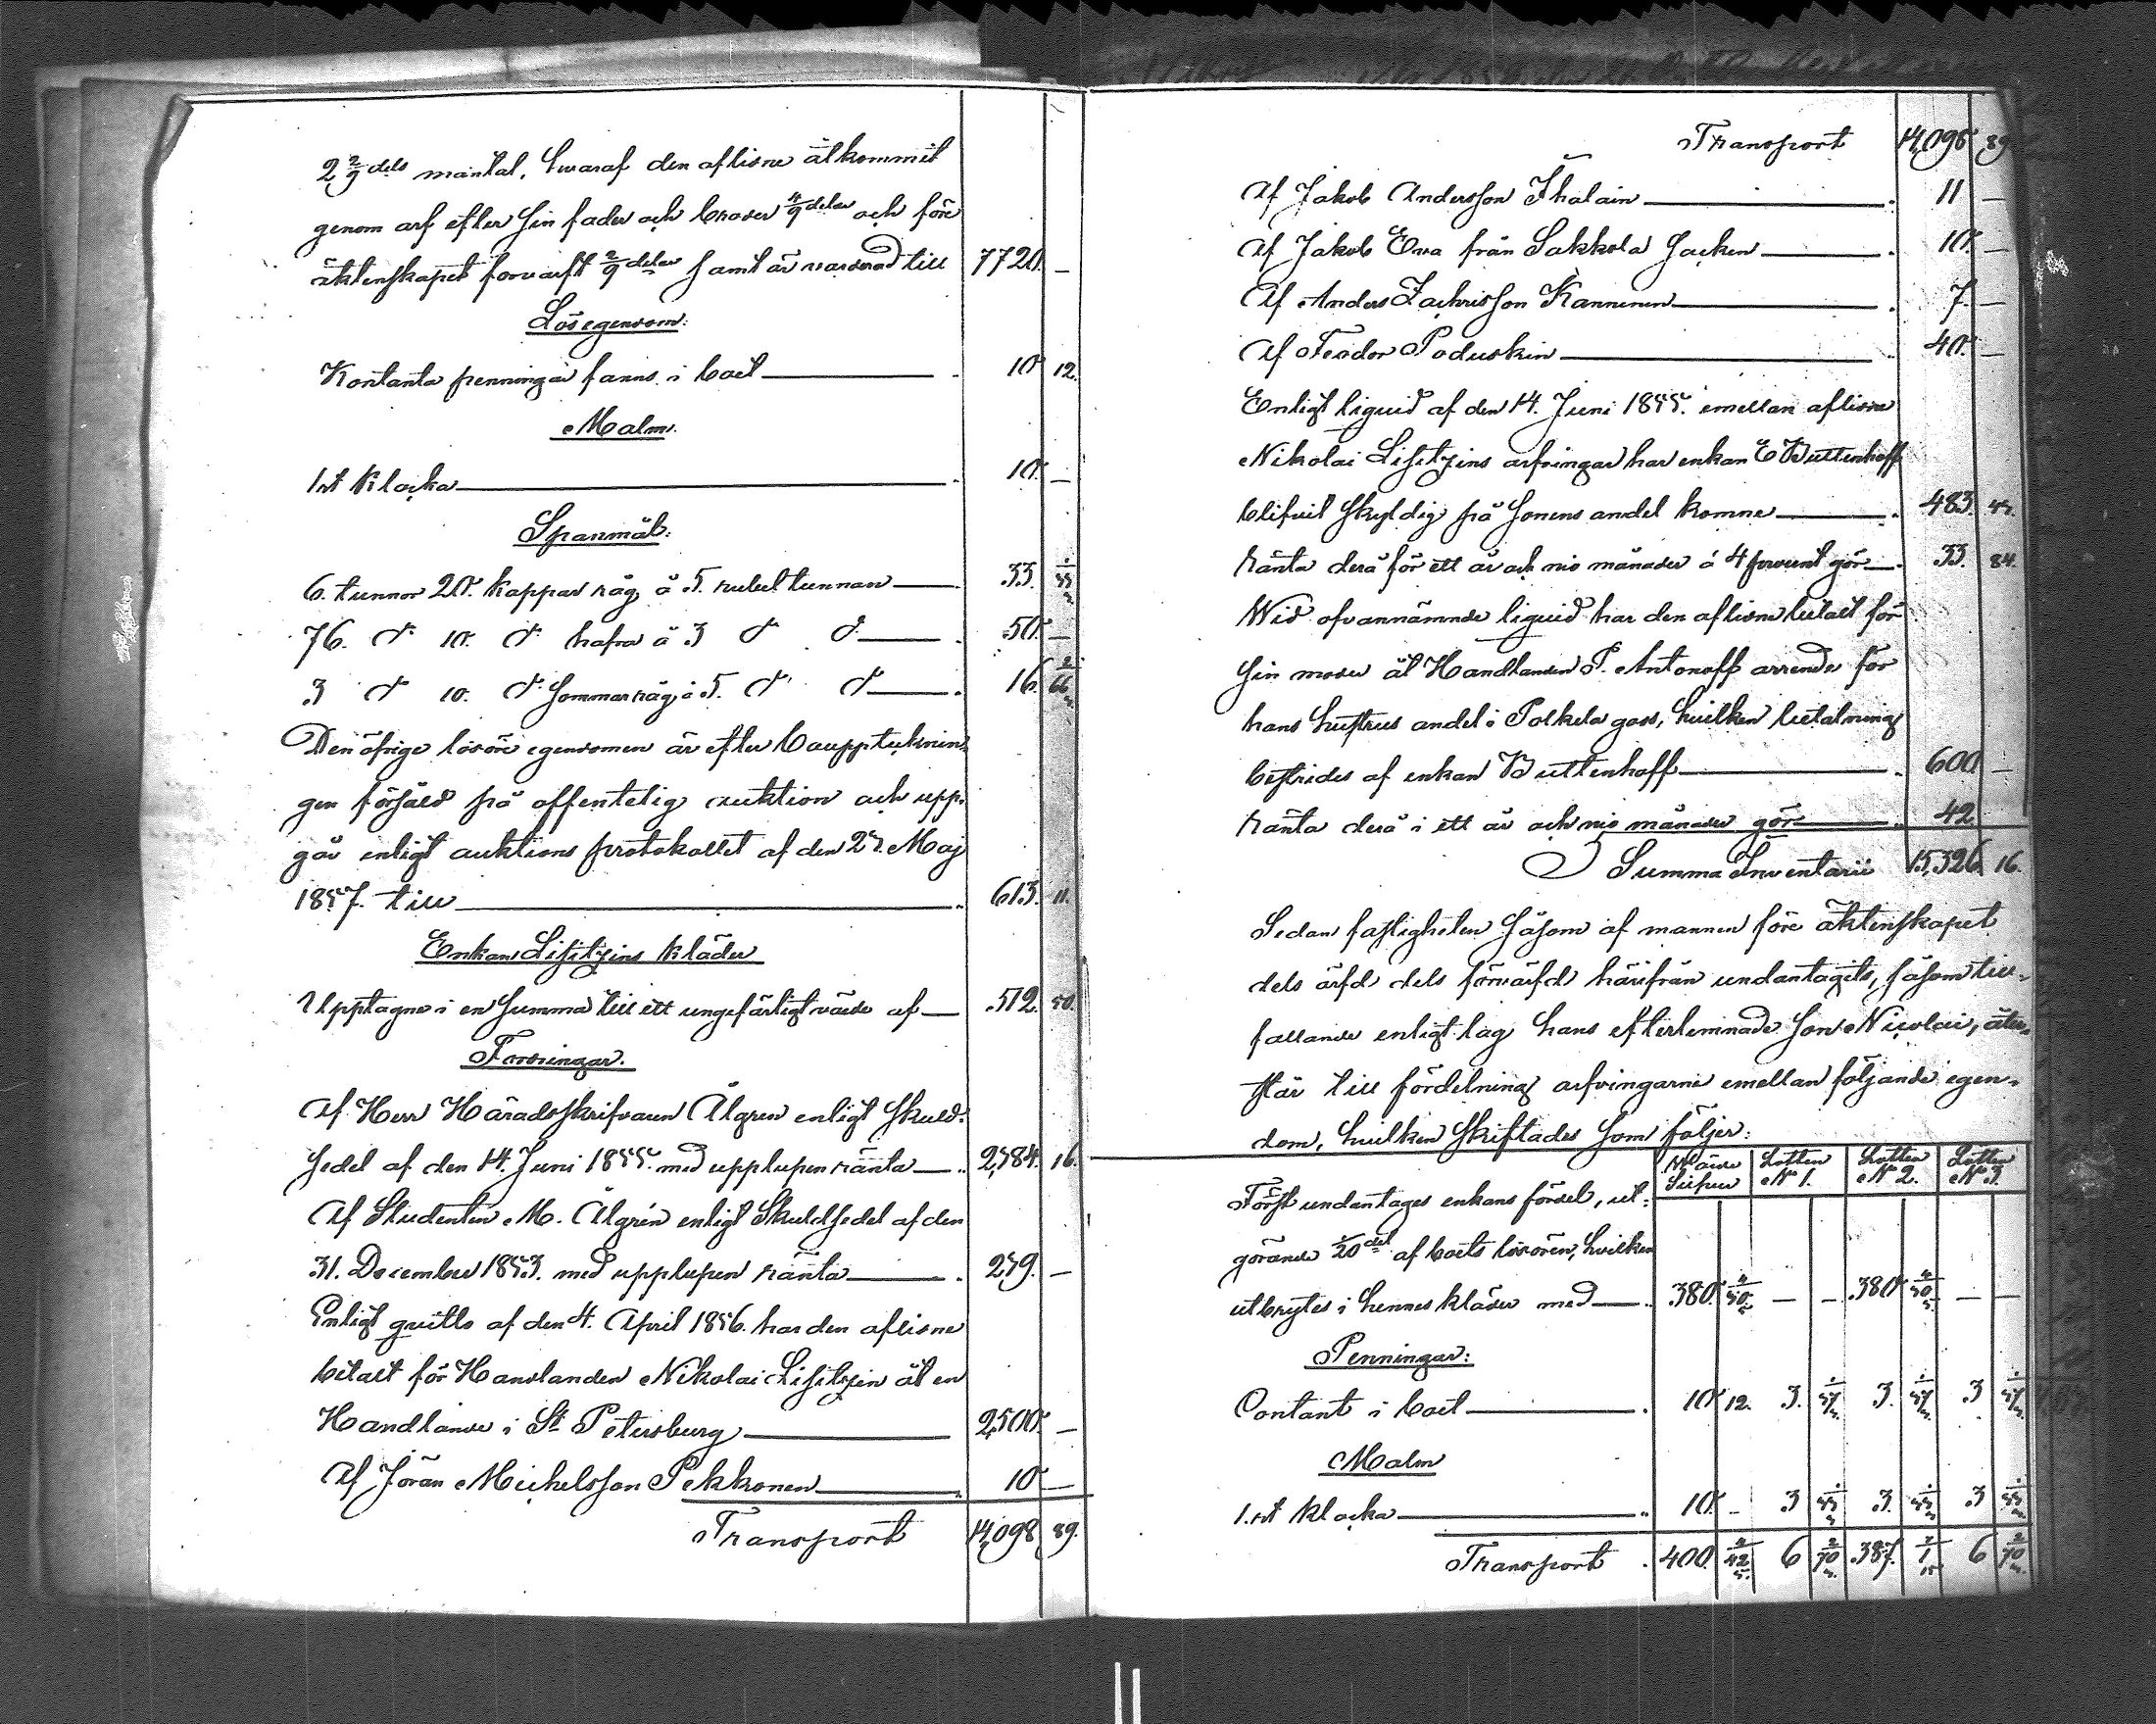 2 2/9 dels mantal, hwaraf den aflidne åtkommit
genom arf efter sin fader och broder 4/9 delar och före
äktenskapet förvärft 2/9 delar samt är värderad till 7720. —
Lösegendom:
Kontanta penningar fanns i boet — 10 12.
Malm.
1 st Klocka — 10. —
Spanmål:
6. tunnor 20. kappar råg à 5. rubel tunnan — 33. 1/33
76. d:o 10. d:o hafra à 3 d:o d:o — 50. —
3 d:o 10. d:o Sommarråg à 5. d:o d:o — 16. 2/66
Den öfrige lösöre egendomen är efter bouppteknin-
gen försåld på offentelig auktion och upp-
går enligt auktions protokollet af den 27. Maj
1857. till — 613. 11.
Enkans Lisitzins kläder
Upptagne i en summa till ett ungefärligt värde af — 512. 50.
Fordringar.
Af Herr Häradsskrifvaren Ålgren enligt skuld-
sedel af den 14. Juni 1855. med upplupen ränta — 2,584. 16.
Af Studenten M. Algrén enligt Skuldsedel af den
31. December 1853. med upplupen ränta — 259. —
Enligt quitto af den 4. April 1856. har den aflidne
betalt för Handlanden Nikolai Lisitzin åt en
Handlande i St Petersburg — 2,500. —
Af Jöran Michelsson Pekkonen — 10 —
Transport 14,098 89.
Transport 14,098 89
Af Jakob Andersson Ihalain — 11 —
Af Jakob Ewa från Sakkola Socken — 10. —
Af Anders Zachrisson Kanninen — 7. —
Af Feodor Poduskin — 40. —
Enligt liquid af den 14. Juni 1855. emellan aflidne
Nikolai Lisitzins arfvingar har enkan E Buttenhoff
blifvit skyldig på sonens andel komne — 483. 43.
Ränta derå för ett år och nio månader à 4 procent gör — 33. 84.
Wid ofvannämnde liquid har den aflidne betalt för
sin moder åt Handlanden P. Antonoff arrende för
hans hustrus andel i Polkela gods, hvilken betalning
bestrides af enkan Buttenhoff — 600 —
Ränta derå i ett år och nio månader gör — 42
Summa Inventarii 15,326. 16.
Sedan fastigheten såsom af mannen före äktenskapet
dels ärfd dels förvärfd härifrån undantagits, såsom till-
fallande enligt lag hans efterlemnade son Nicolai, åter-
står till fördelning arfvingarne emellan följande egen-
dom, hvilken skiftades som följer:
Wärde Silfver Lotten N 1. Lotten N 2. Lotten N 3.
Först undantages enkans fördel, ut-
görande 1/20 del af boets lösören, hvilken
utbrytes i hennes kläder med — 380. 4/30/5 — — 380 4/30/5 — —
Penningar:
Contant i boet — 10 12. 3. 1/37 3. 1/37 3 1/37
Malm
1. st klocka — 10. — 3 1/33 3. 1/33 3 1/33
Transport 400. 2/42/5 6 2/70 387. 7/1/15 6 2/70